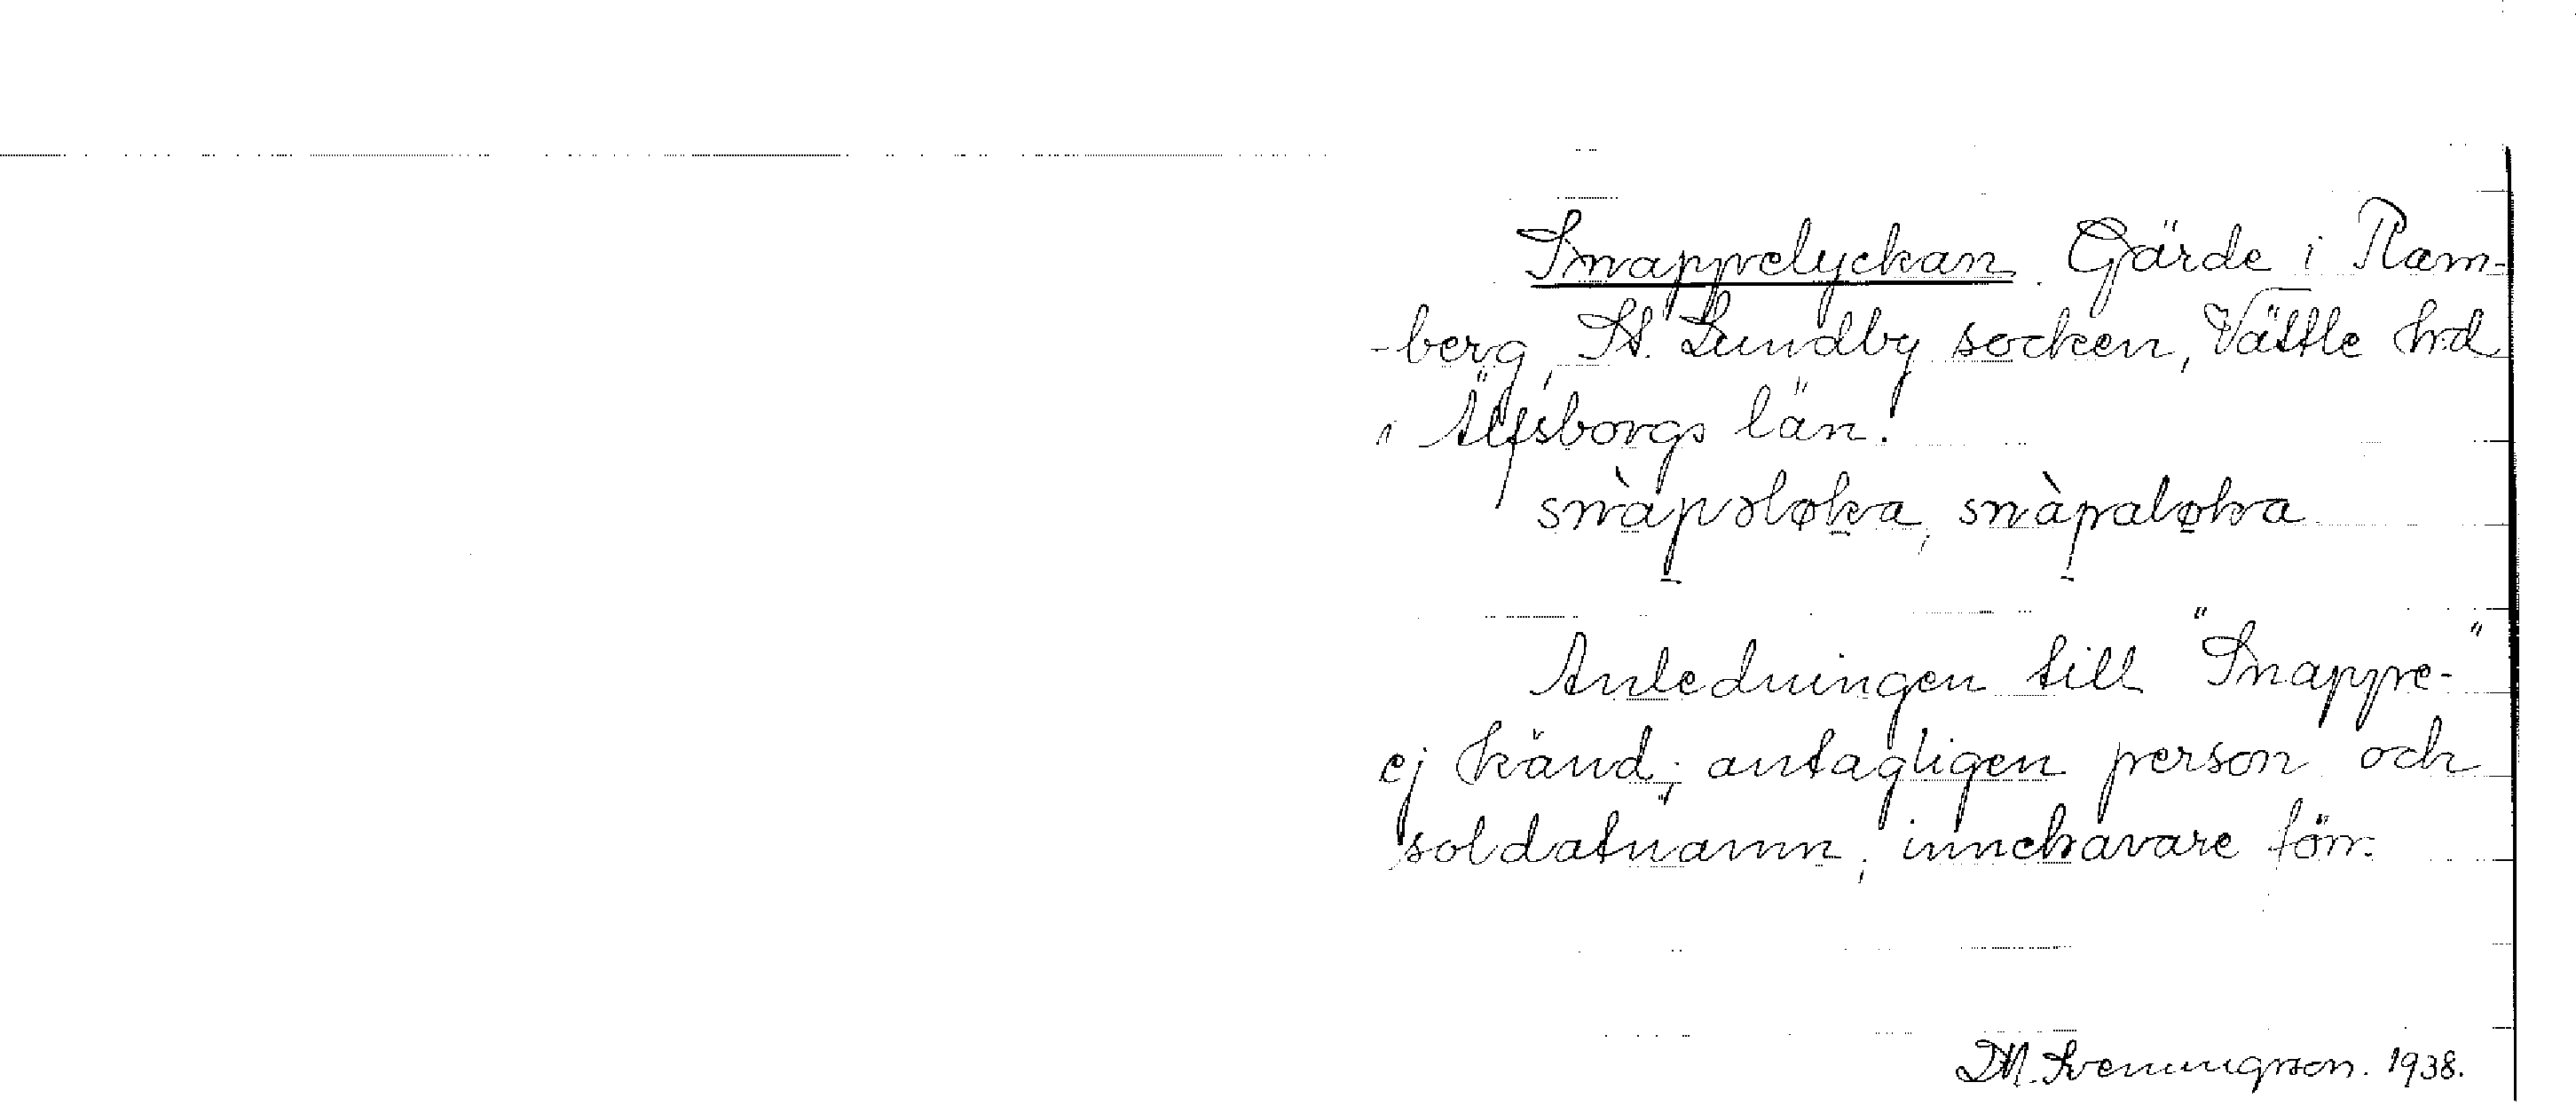 Snappelyckan. Gärde i Ram-
-berg, St. Lundby socken, Vättle hd
i Älfsborgs län.
snàpəløka, snàpaløka
Anledningen till "Snappe-"
ej känd; antagligen person och
soldatnamn, innehavare förr.
D.M. Svenningsson. 1938.